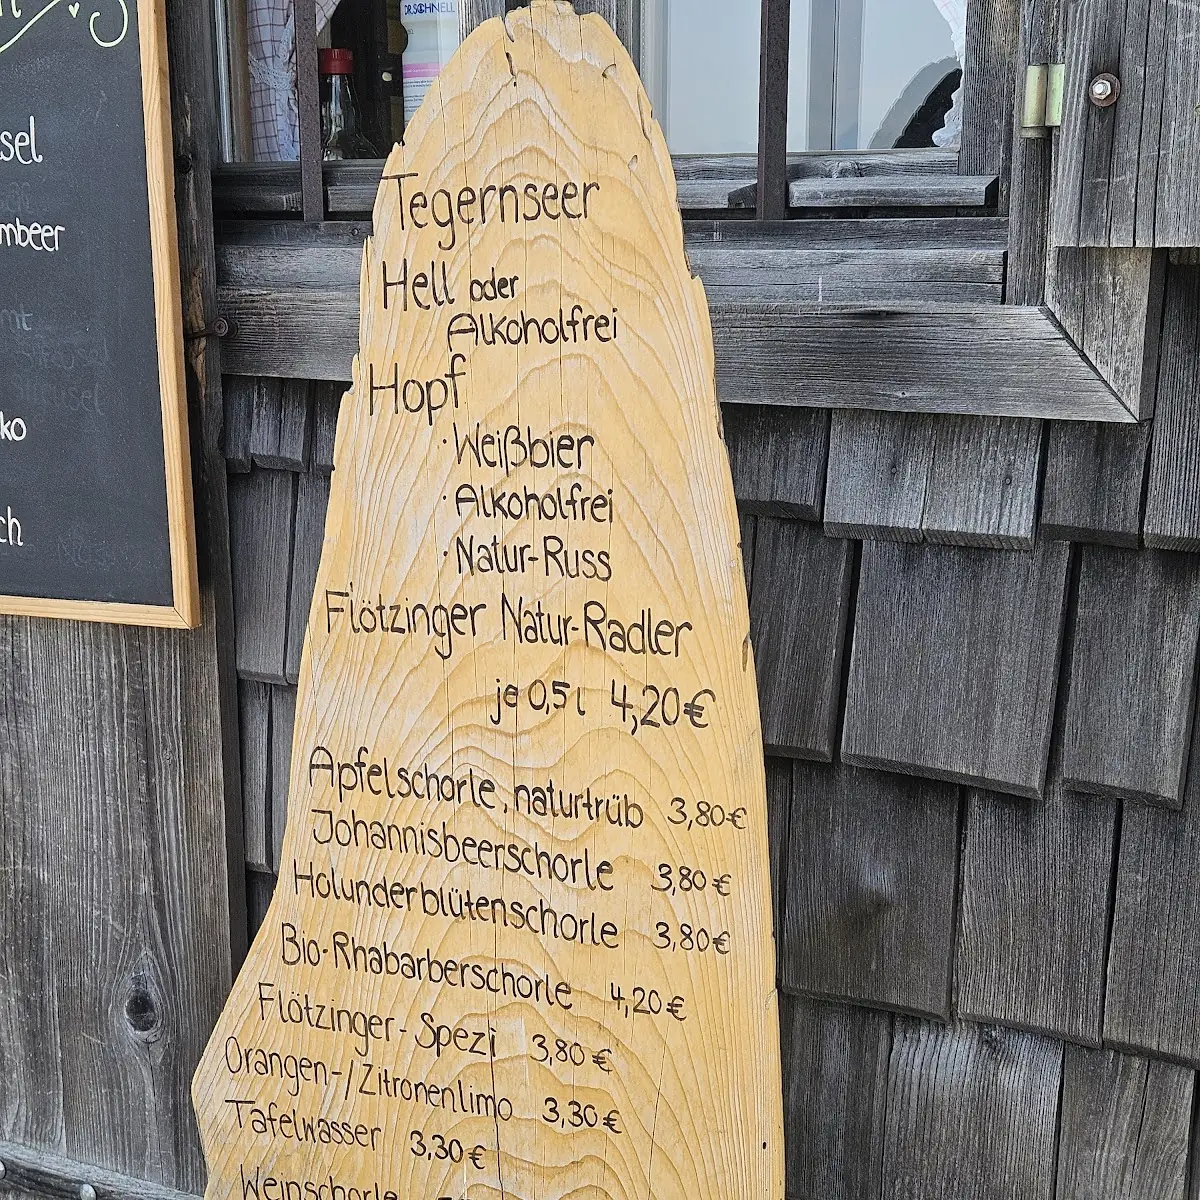 DR.SCHNELL
sel
mbeer
ko
ch
Tegernseer
Hell oder
Alkoholfrei
Hopf
· Weißbier
· Alkoholfrei
· Natur-Russ
Flötzinger Natur-Radler
je 0,5 l 4,20€
Apfelschorle, naturtrüb 3,80€
Johannisbeerschorle 3,80€
Holunderblütenschorle 3,80€
Bio-Rhabarberschorle 4,20€
Flötzinger-Spezi 3,80€
Orangen-/Zitronenlimo 3,30€
Tafelwasser 3,30€
Weinschorle